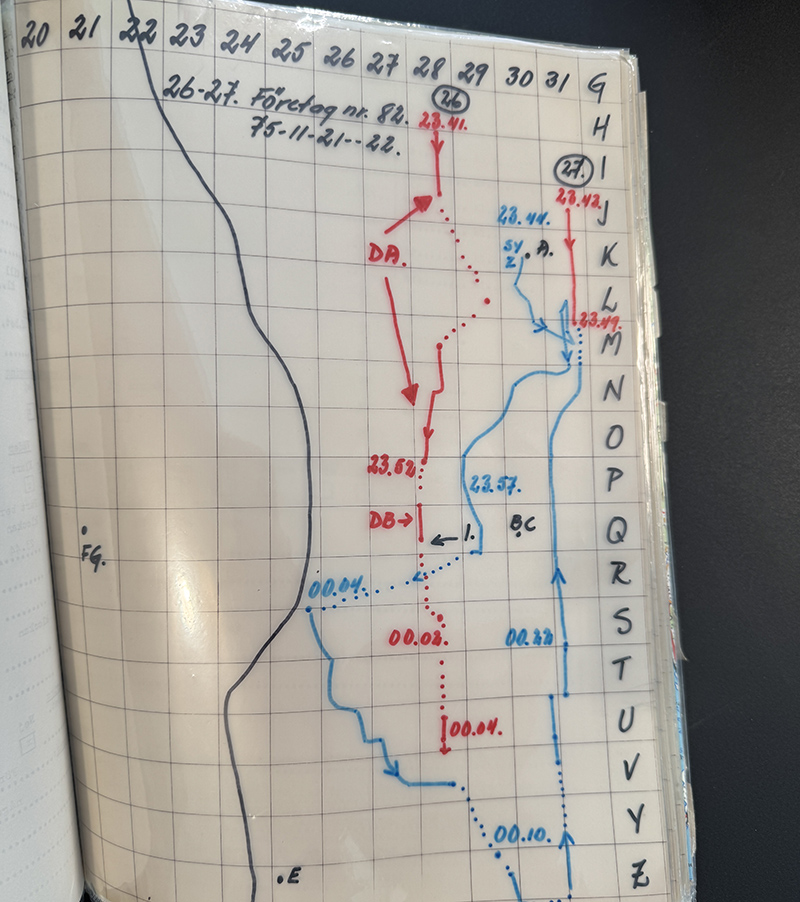 20 21 22 23 24 25 26 27 28 29 30 31 G
26-27. Företag nr. 82.
75-11-21--22.
26
23.41.
H
27.
I
23.43.
J
23.44.
DA.
SV
2
A.
K
L
23.49.
M
N
O
23.52
23.57.
P
DB→
1.
BC
Q
FG.
R
00.04.
S
00.02.
00.22
T
00.04.
U
V
00.10.
Y
E
Z